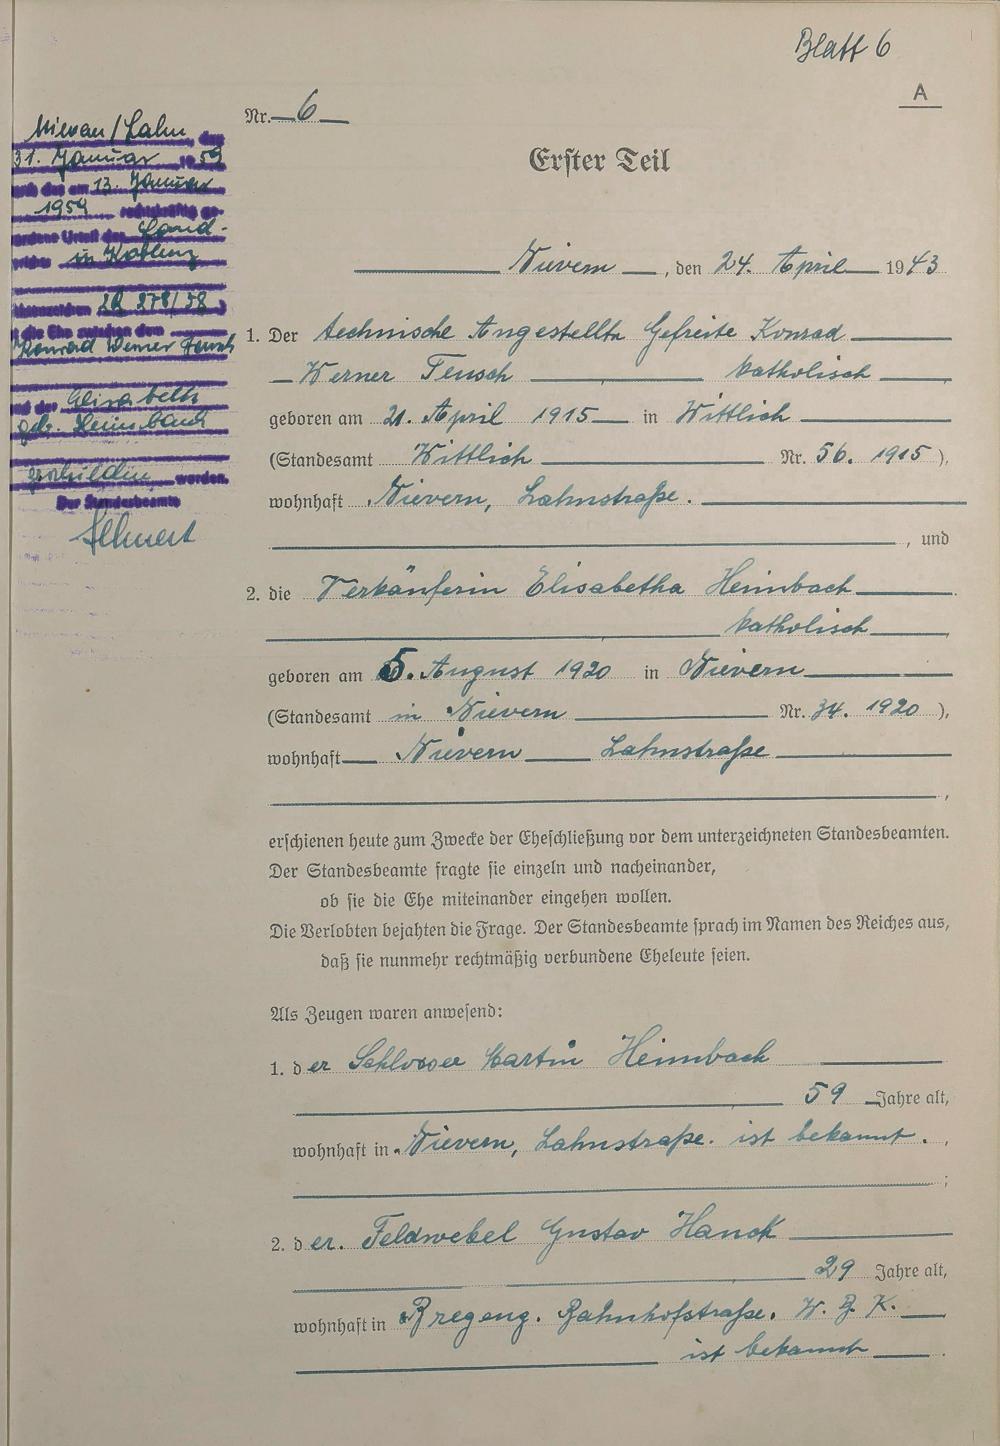 Blatt 6
A
Nr. 6
Erster Teil
Nievern, den 24. April 1943
1. Der technische Angestellte Gefreite Konrad
Werner Teusch katholisch
geboren am 21. April 1915 in Wittlich
(Standesamt Wittlich Nr. 56. 1915),
wohnhaft Nievern, Lahnstraße.
, und
2. die Verkäuferin Elisabetha Heimbach
katholisch
geboren am 5. August 1920 in Nievern
(Standesamt in Nievern Nr. 34. 1920),
wohnhaft Nievern Lahnstraße
,
erschienen heute zum Zwecke der Eheschließung vor dem unterzeichneten Standesbeamten.
Der Standesbeamte fragte sie einzeln und nacheinander,
ob sie die Ehe miteinander eingehen wollen.
Die Verlobten bejahten die Frage. Der Standesbeamte sprach im Namen des Reiches aus,
daß sie nunmehr rechtmäßig verbundene Eheleute seien.
Als Zeugen waren anwesend:
1. der Schlosser Martin Heimbach
59 Jahre alt,
wohnhaft in Nievern, Lahnstraße. ist bekannt.,
;
2. der. Feldwebel Gustav Hanck
29 Jahre alt,
wohnhaft in Bregenz. Bahnhofstraße. W. B. K.
ist bekannt.
/Lahn, den
31. Januar 1959
am 13. Januar
1959 rechtskräftig ge-
wordene Urteil des Land-
in Koblenz
2R 278/58
die Ehe zwischen dem
Konrad Werner Teusch
der Elisabeth
geb. Heimbach
geschieden worden.
Der Standesbeamte